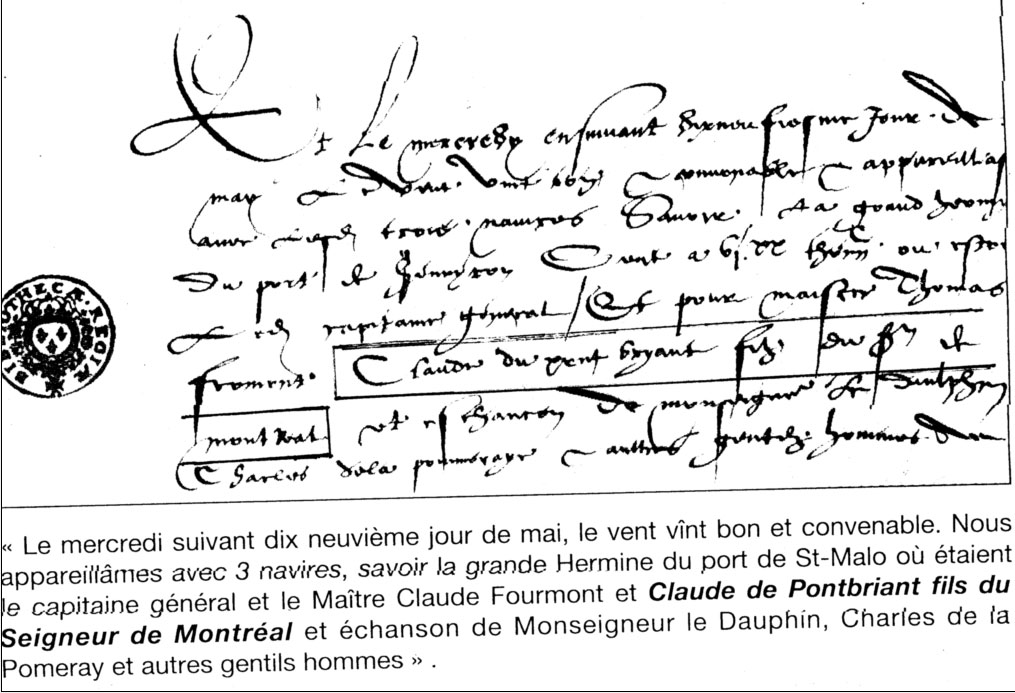 Et Le mercredy ensuivant dixneufiesme Jour de
may Le vent vint bon & convenable & appareillas
avec trois navires Savoir La grand hermi
Du port de Cent a vj.xx thonn ou estoi
Le cappitaine general Et pour maistre Thomas
froment Claude du pont bryant filz du Sr de
mont Real et eschancon de monseigneur Le Daulphin
Charles de la pommeraye & aultres gentilz hommes
BIBLIOTHECÆ REGIÆ
« Le mercredi suivant dix neuvième jour de mai, le vent vînt bon et convenable. Nous
appareillâmes avec 3 navires, savoir la grande Hermine du port de St-Malo où étaient
le capitaine général et le Maître Claude Fourmont et Claude de Pontbriant fils du
Seigneur de Montréal et échanson de Monseigneur le Dauphin, Charles de la
Pomeray et autres gentils hommes » .